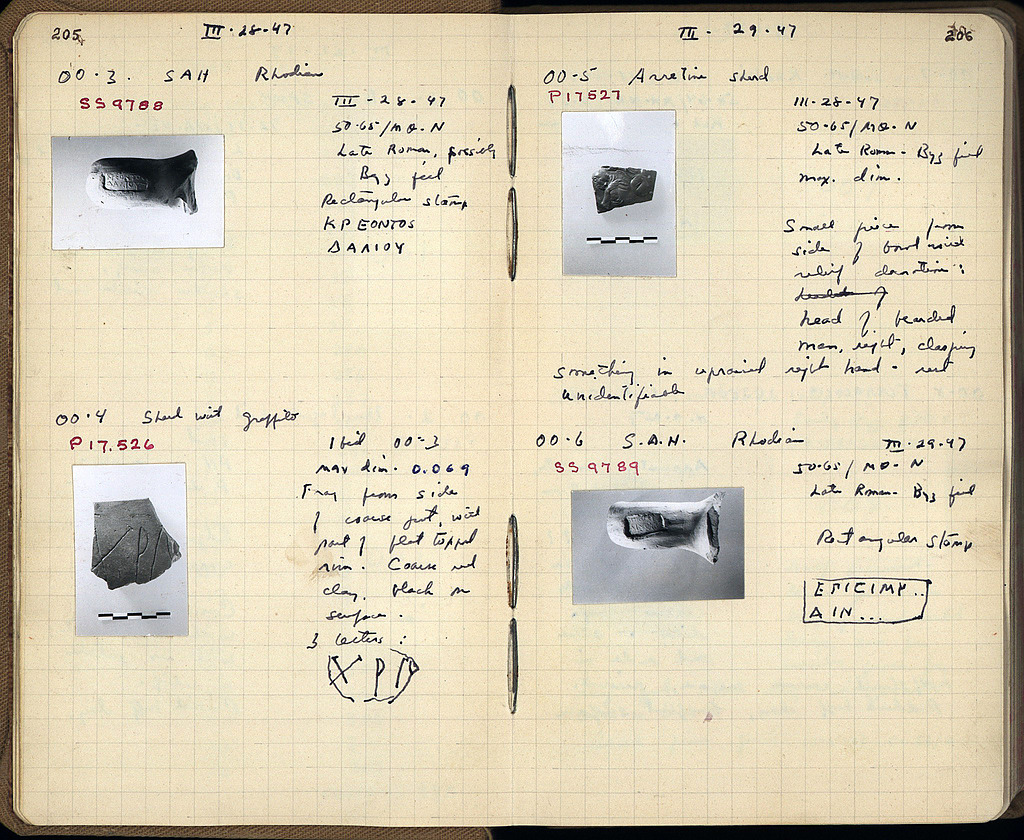 205
III · 28 · 47
00 · 3. SAH Rhodian
SS 9788
III - 28 - 47
50-65/ΜΘ - Ν
Late Roman, possibly
Byz fill
Rectangular stamp
ΚΡΕΟΝΤΟΣ
ΔΑΛΙΟΥ
00 · 4 Sherd with graffito
P 17,526
Ibid 00-3
max dim. 0.069
Frag from side
of coarse pot, with
part of flat topped
rim. Coarse red
clay, black on
surface.
3 letters :
Χ Ρ Π
III - 29 · 47
206
00 - 5 Arretine sherd
P 17527
III - 28 - 47
50-65/ΜΘ - Ν
Late Roman - Byz fill
max. dim.
Small piece from
side of bowl with
relief decoration :
head of bearded
man, right, clasping
something in upraised right hand - rest
unidentifiable
00 - 6 S.A.H. Rhodian
SS 9789
III - 29 - 47
50-65/ ΜΘ - Ν
Late Roman - Byz fill
Rectangular stamp
ΕΠΙΣΙΜΥ..
ΛΙΝ...